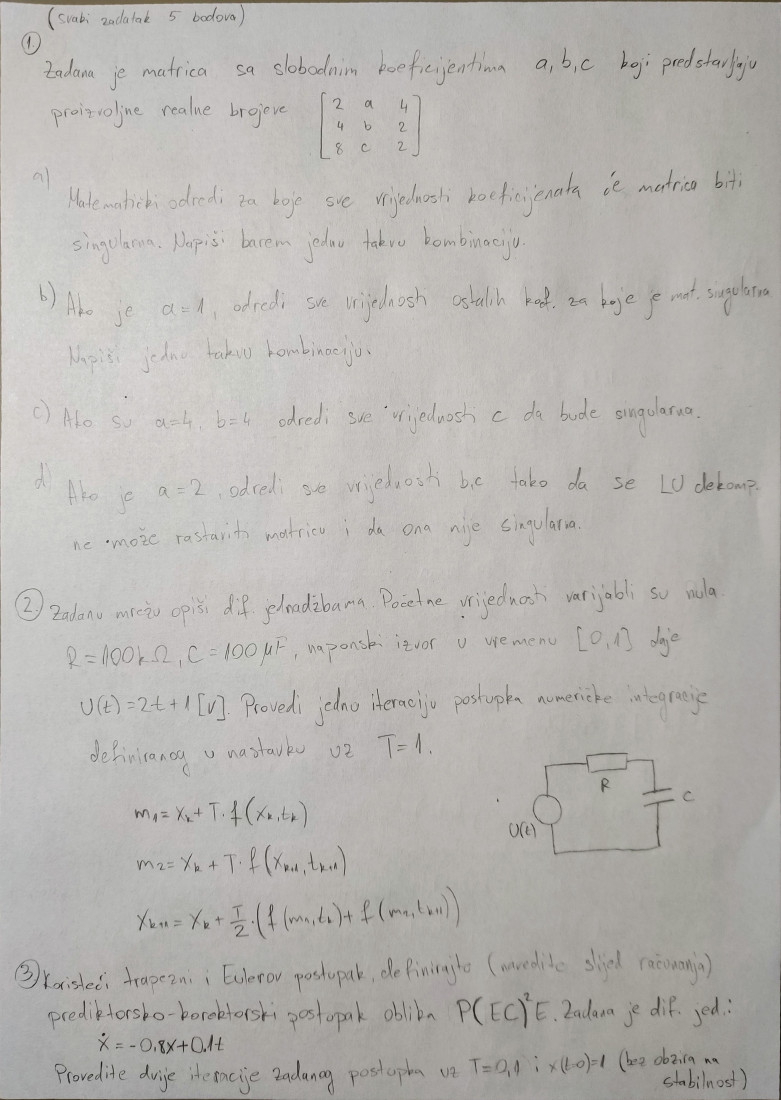 (svaki zadatak 5 bodova)
1.
Zadana je matrica sa slobodnim koeficijentima a, b, c koji predstavljaju
proizvoljne realne brojeve [2 a 4
4 b 2
8 c 2]
a) Matematički odredi za koje sve vrijednosti koeficijenata će matrica biti
singularna. Napiši barem jednu takvu kombinaciju.
b) Ako je a=1, odredi sve vrijednosti ostalih koef. za koje je mat. singularna
Napiši jednu takvu kombinaciju.
c) Ako su a=4, b=4 odredi sve vrijednosti c da bude singularna.
d) Ako je a=2, odredi sve vrijednosti b,c tako da se LU dekomp.
ne može rastaviti matricu i da ona nije singularna.
2. Zadanu mrežu opiši dif. jednadžbama. Početne vrijednosti varijabli su nula.
R=100kΩ, C=100μF, naponski izvor u vremenu [0,1] daje
U(t)=2t+1[V]. Provedi jednu iteraciju postupka numeričke integracije
definiranog u nastavku uz T=1.
m₁=Xₖ+T·f(Xₖ,tₖ)
m₂=Xₖ+T·f(Xₖ₊₁,tₖ₊₁)
Xₖ₊₁=Xₖ+T/2·(f(m₁,tₖ)+f(m₂,tₖ₊₁))
R
C
U(t)
3. Koristeći trapezni i Eulerov postupak, definirajte (navedite slijed računanja)
prediktorsko-korektorski postupak oblika P(EC)²E. Zadana je dif. jed.:
ẋ=-0,8x+0,1t
Provedite dvije iteracije zadanog postupka uz T=0,1 i x(t=0)=1 (bez obzira na
stabilnost)